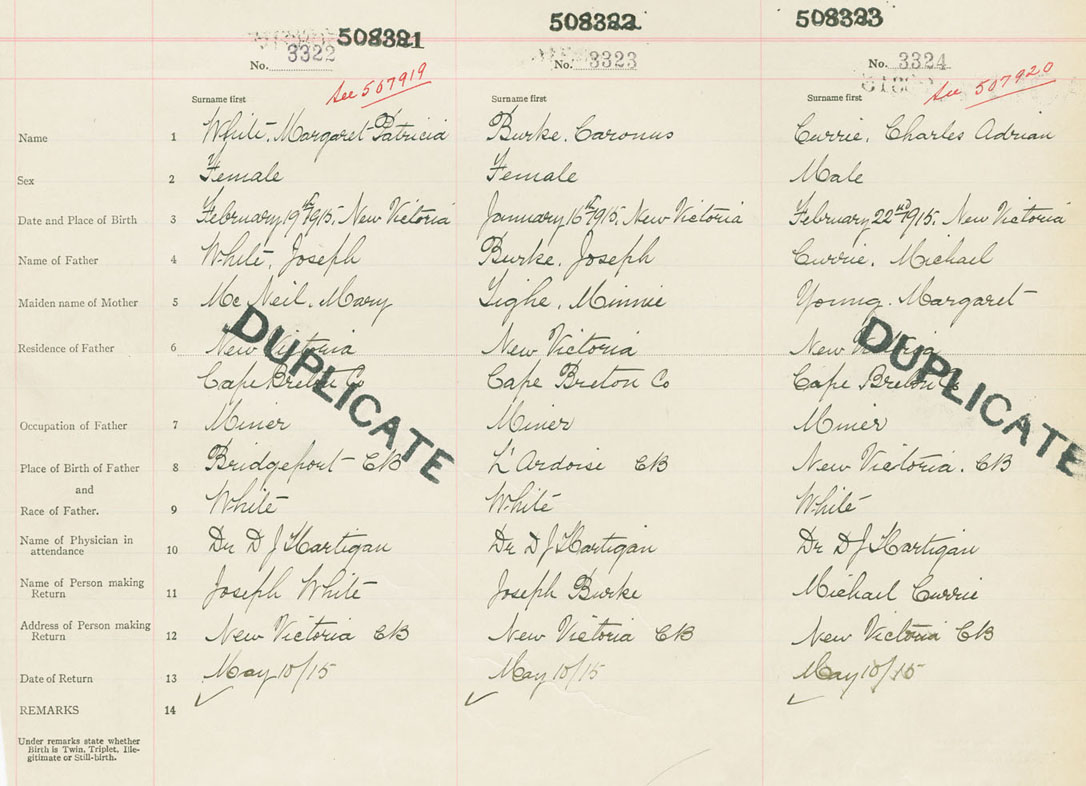 508321 508322 508323
No. 3322 No. 3323 No. 3324
See 507919 See 507920
Surname first Surname first Surname first
Name 1 White, Margaret Patricia Burke, Caronus Currie, Charles Adrian
Sex 2 Female Female Male
Date and Place of Birth 3 February 19th 1915, New Victoria January 16th 1915, New Victoria February 22nd 1915, New Victoria
Name of Father 4 White, Joseph Burke, Joseph Currie, Michael
Maiden name of Mother 5 McNeil, Mary Tighe, Minnie Young, Margaret
Residence of Father 6 New Victoria New Victoria New Victoria
Cape Breton Co Cape Breton Co Cape Breton Co
DUPLICATE DUPLICATE
Occupation of Father 7 Miner Miner Miner
Place of Birth of Father 8 Bridgeport CB L'Ardoise CB New Victoria, CB
and
Race of Father. 9 White White White
Name of Physician in
attendance 10 Dr D J Hartigan Dr D J Hartigan Dr D J Hartigan
Name of Person making
Return 11 Joseph White Joseph Burke Michael Currie
Address of Person making
Return 12 New Victoria CB New Victoria CB New Victoria CB
Date of Return 13 May 10/15 May 10/15 May 10/15
REMARKS 14
Under remarks state whether
Birth is Twin, Triplet, Ille-
gitimate or Still-birth.